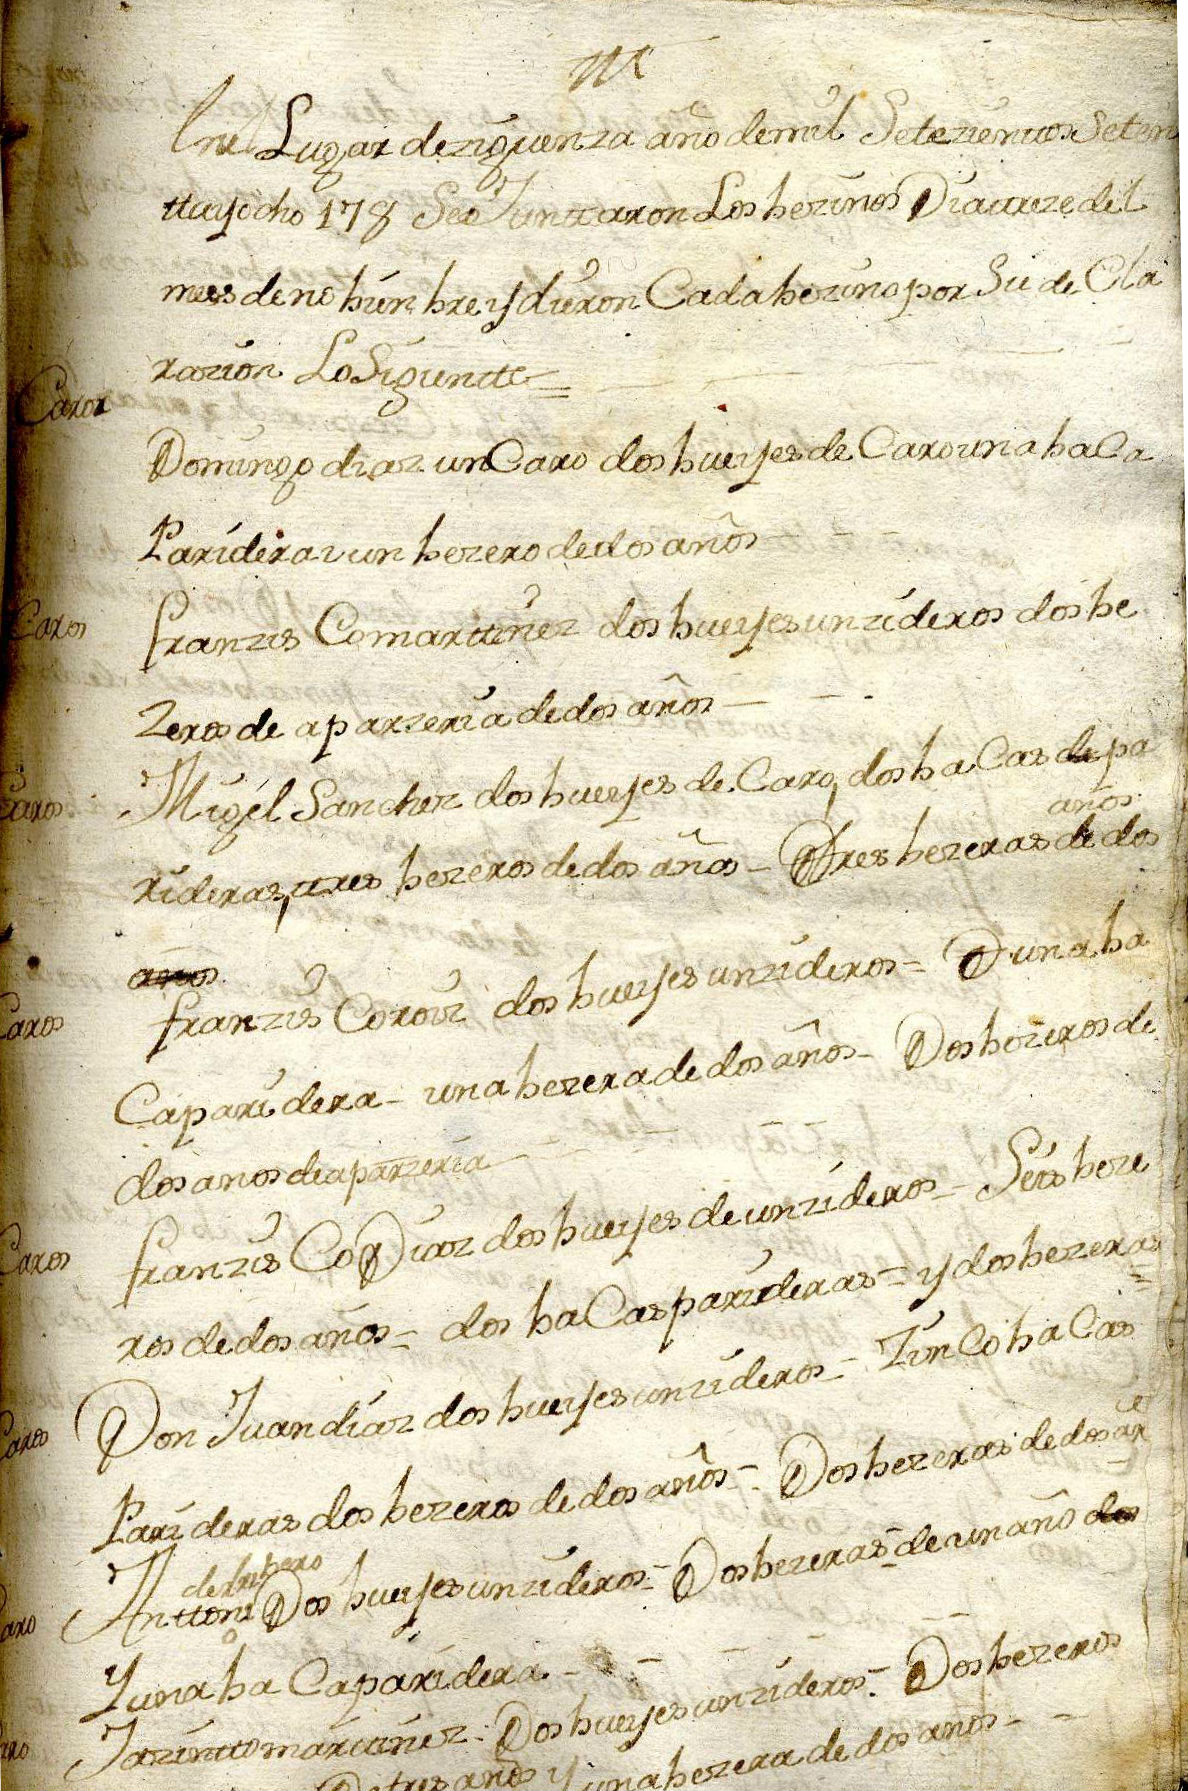 En el Lugar deziguenza año demil Setezienttos Seten
ttayocho 178 Seo Junttaron Los bezinos Diattreze del
mees de nobienbre y dieron Cada bezino por Sii de Cla
razion Lo Siguientte
Caros
Domingo diaz un Caro dos bueyes de Caro una baCa
Paridera i un bezero de dos años
Caros
franzis Comarttinez dos bueyes unzideros dos be
zeros de aparzeria de dos años
Caros
Migel Sanchez dos bueyes de Caro, dos baCas de pa
años
rideras, ttres bezeros de dos años - Ttres bezeras de dos
años
Caros
franzis Coroiz dos bueyes unzideros = una ba
Caparidera - una bezera de dos años - Dos bezeros de
dos anos deaparzeria
Caros
franzis Co Diaz dos bueyes de unzideros - Seis beze
ros de dos años = dos baCas parideras = y dos bezeras
Caros
Don Juan diaz dos bueyes unzideros - Zin Co baCas
Parideras dos bezeros de dos años = Dos bezeras de dos añ
de
Caro
Anttonio Dos bueyes unzideros = Dos bezeras de un año dos
Y una ba Caparidera
Caro
Jazintto marttinez - Dos bueyes unzideros - Dos bezeros
De tres años y una bezera de dos anos